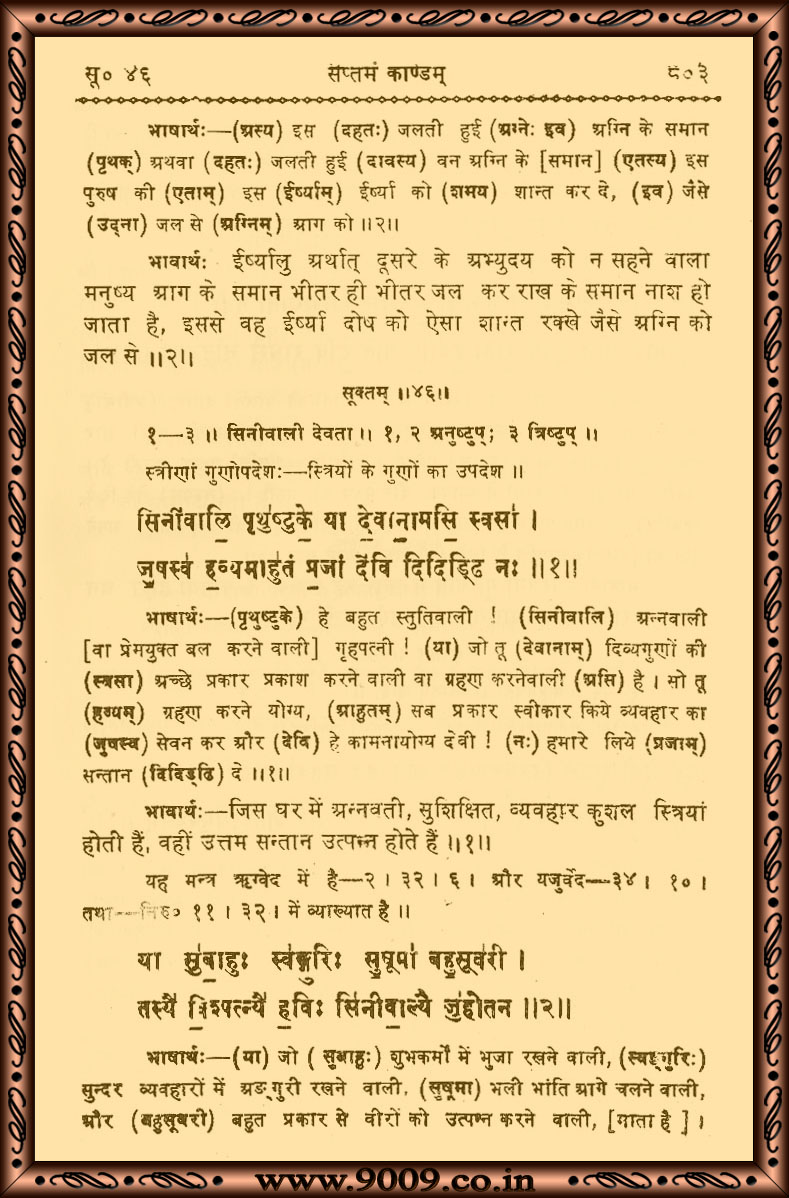 सू० ४६ सप्तमं काण्डम् ८०३
भाषार्थः—(अस्य) इस (दहतः) जलती हुई (अग्नेः इव) अग्नि के समान
(पृथक्) अथवा (दहतः) जलती हुई (दावस्य) वन अग्नि के [समान] (एतस्य) इस
पुरुष की (एताम्) इस (ईर्ष्याम्) ईर्ष्या को (शमय) शान्त कर दे, (इव) जैसे
(उद्ना) जल से (अग्निम्) आग को ॥२॥
भावार्थः ईर्ष्यालु अर्थात् दूसरे के अभ्युदय को न सहने वाला
मनुष्य आग के समान भीतर ही भीतर जल कर राख के समान नाश हो
जाता है, इससे वह ईर्ष्या दोष को ऐसा शान्त रक्खे जैसे अग्नि को
जल से ॥२॥
सूक्तम् ॥४६॥
१—३ ॥ सिनीवाली देवता ॥ १, २ अनुष्टुप्; ३ त्रिष्टुप् ॥
स्त्रीणां गुणोपदेशः—स्त्रियों के गुणों का उपदेश ॥
सिनी॑वालि॒ पृथु॑ष्टुके॒ या दे॒वाना॒मसि॒ स्वसा॑ ।
जु॒षस्व॑ ह॒व्यमाहु॑तं प्र॒जां दे॑वि दिदिड्ढि नः ॥१॥
भाषार्थः—(पृथुष्टुके) हे बहुत स्तुतिवाली ! (सिनीवालि) अन्नवाली
[वा प्रेमयुक्त बल करने वाली] गृहपत्नी ! (या) जो तू (देवानाम्) दिव्यगुणों की
(स्वसा) अच्छे प्रकार प्रकाश करने वाली वा ग्रहण करनेवाली (असि) है । सो तू
(हव्यम्) ग्रहण करने योग्य, (आहुतम्) सब प्रकार स्वीकार किये व्यवहार का
(जुषस्व) सेवन कर और (देवि) हे कामनायोग्य देवी ! (नः) हमारे लिये (प्रजाम्)
सन्तान (दिदिड्ढि) दे ॥१॥
भावार्थः—जिस घर में अन्नवती, सुशिक्षित, व्यवहार कुशल स्त्रियां
होती हैं, वहीं उत्तम सन्तान उत्पन्न होते हैं ॥१॥
यह मन्त्र ऋग्वेद में है—२ । ३२ । ६ । और यजुर्वेद—३४ । १० ।
तथा—निरु० ११ । ३२ । में व्याख्यात है ॥
या सु॑बा॒हुः स्व॑ङ्गु॒रिः सु॒षूमा॑ बहु॒सूव॑री ।
तस्यै॑ वि॒श्पत्न्यै॑ ह॒विः सि॑नीवा॒ल्यै जु॑होतन ॥२॥
भाषार्थः—(या) जो (सुबाहुः) शुभकर्मों में भुजा रखने वाली, (स्वङ्गुरिः)
सुन्दर व्यवहारों में अङ्गुरी रखने वाली, (सुषूमा) भली भांति आगे चलने वाली,
और (बहुसूवरी) बहुत प्रकार से वीरों को उत्पन्न करने वाली, [माता है] ।
www.9009.co.in